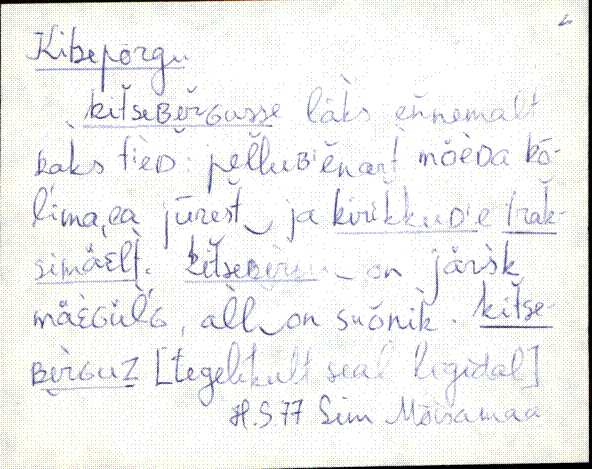 Kibepõrgu
kit̆seBèrGusse läks ennemalt
kaks tieD: pellu B'ènart mö̀èDa kō-
lima,ea jūrest ja kirikkuD'e trak-
simäelt. kit̆seBèrGu on järsk
mäèGülG, all on suònik. kit̆se-
BèrGuz [tegelikult seal ligidal]
H.S 77 Sim Moisamaa